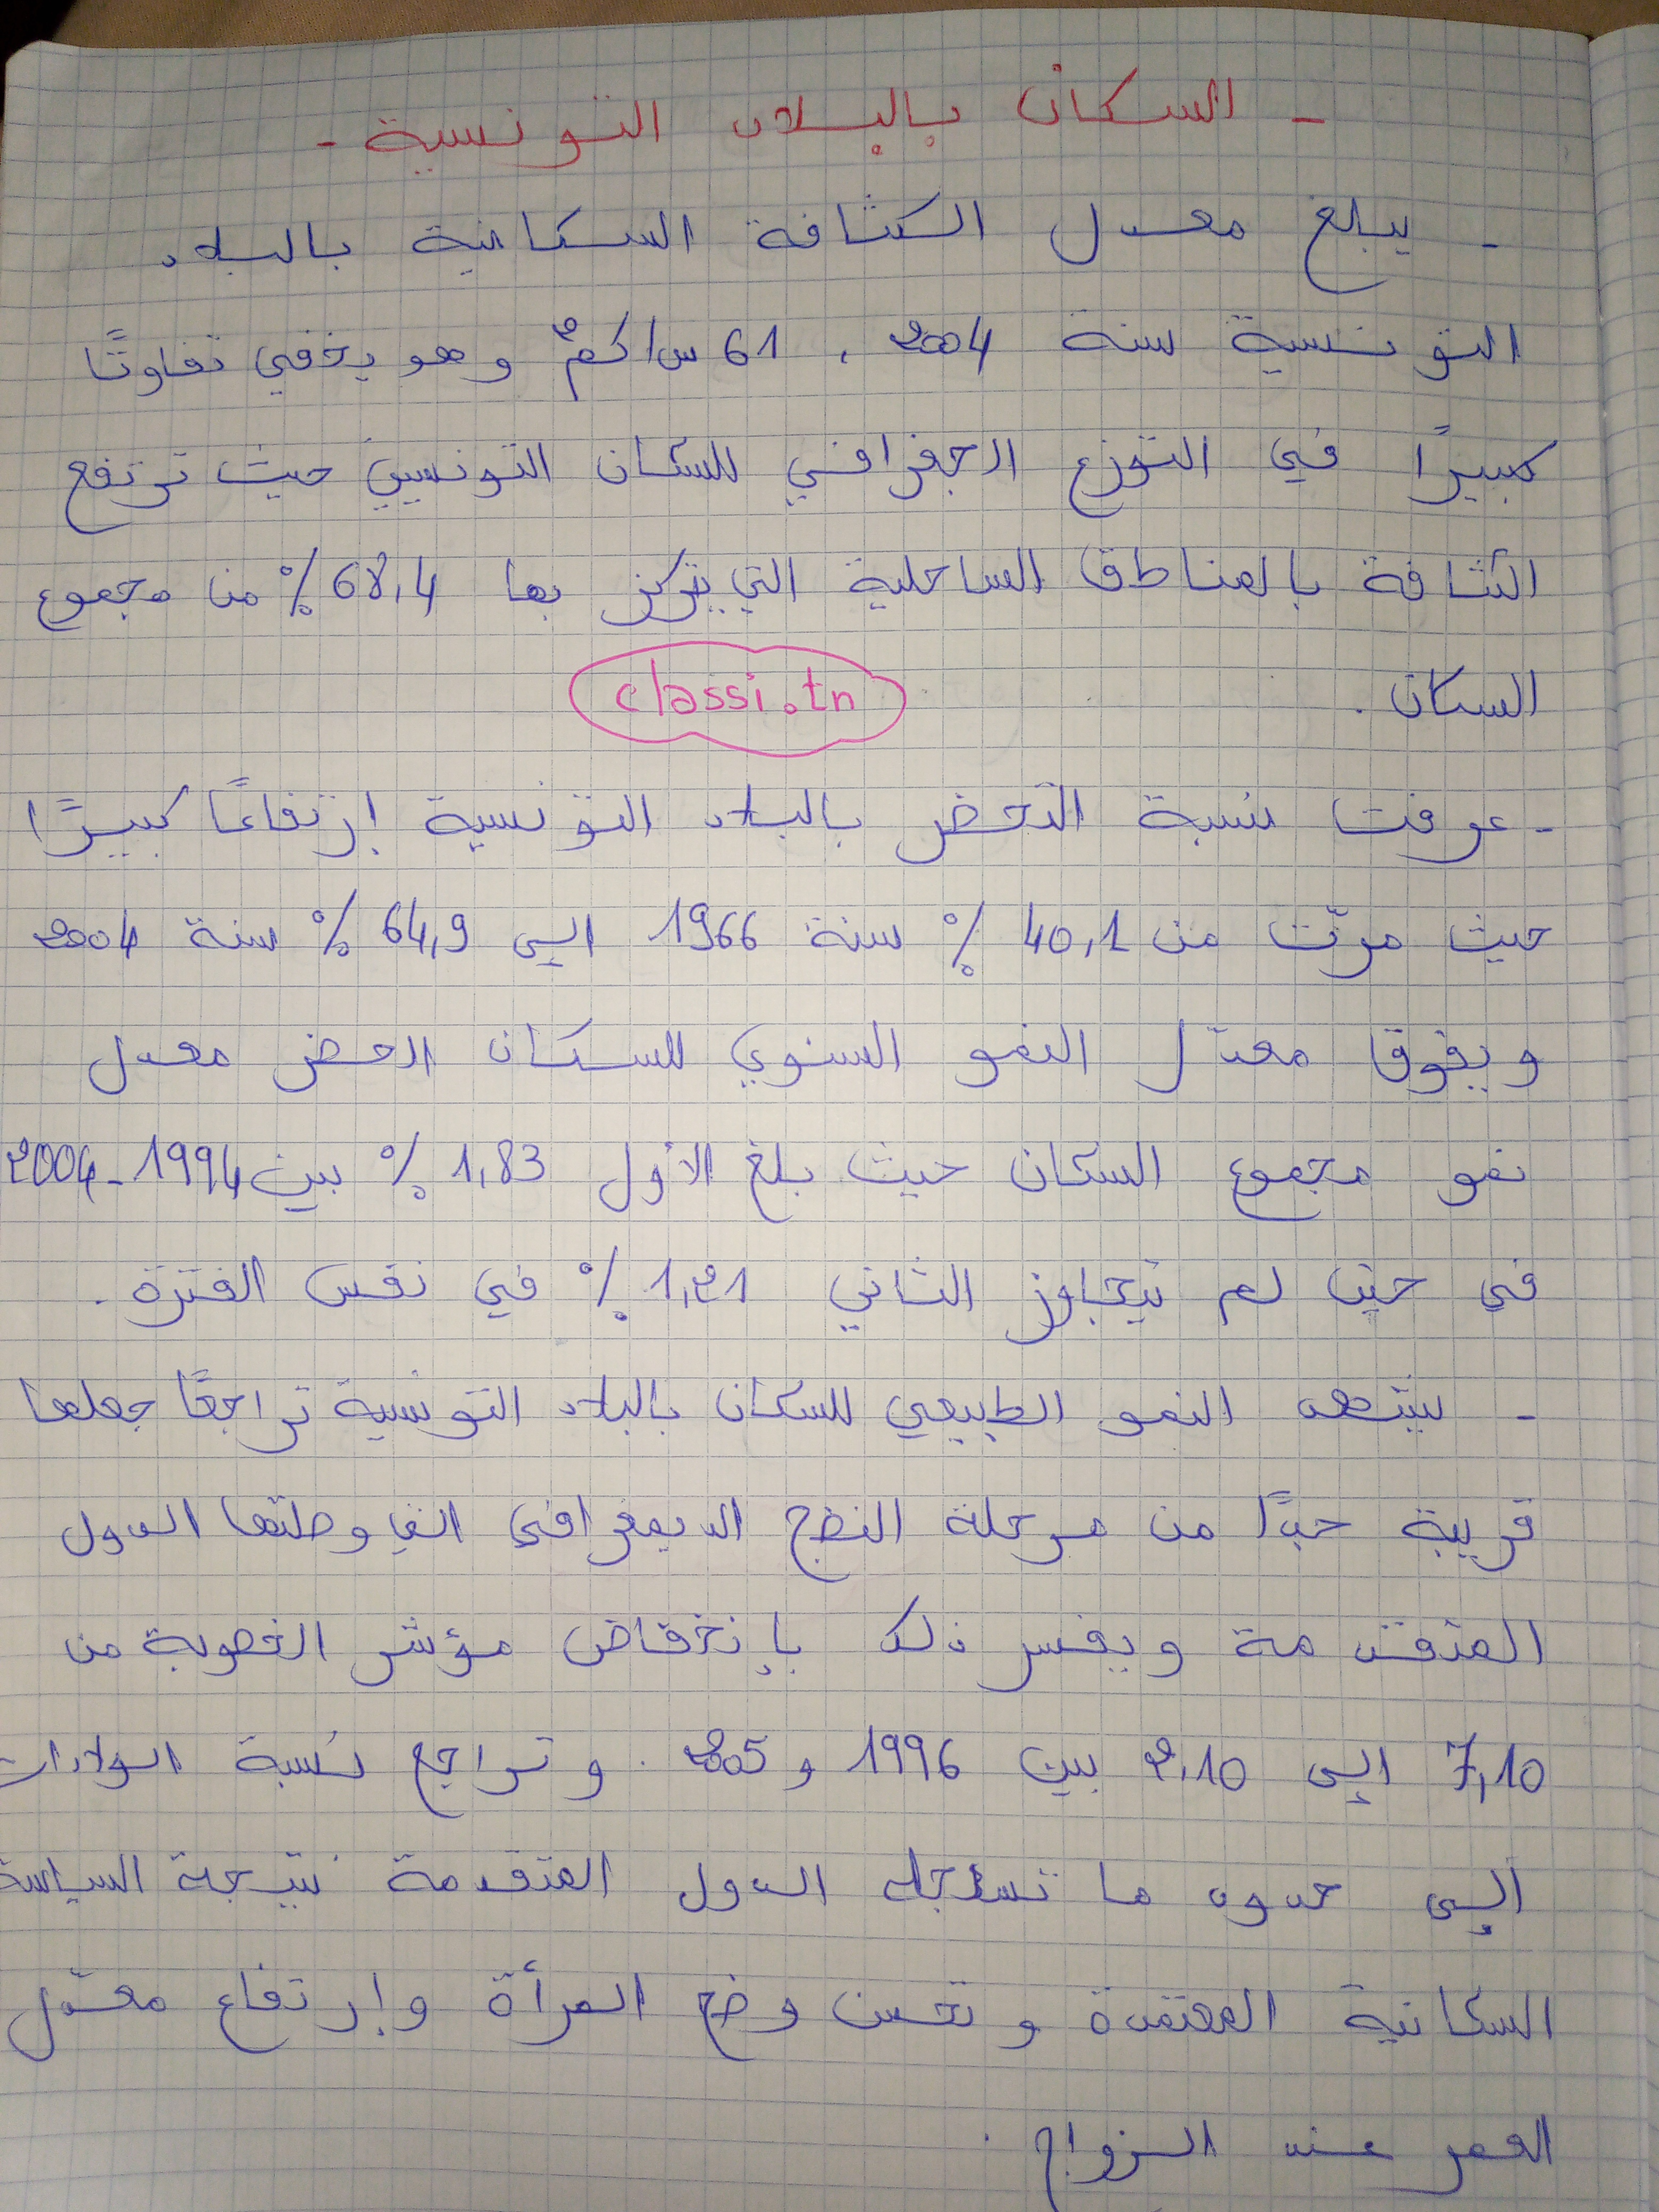 - السكان بالبلاد التونسية -
- يبلغ معدل الكثافة السكانية بالبلاد
التونسية سنة 2004 ، 61 س/كم2 وهو يخفي تفاوتًا
كبيرًا في التوزع الجغرافي للسكان التونسيين حيث ترتفع
الكثافة بالمناطق الساحلية التي يتركز بها 68,4 % من مجموع
السكان .
classi.tn
- عرفت نسبة التحضر بالبلاد التونسية إرتفاعًا كبيرًا
حيث مرّت من 40,1 % سنة 1966 الى 64,9 % سنة 2004
ويفوق معدّل النمو السنوي للسكان الحضر معدل
نمو مجموع السكان حيث بلغ الأول 1,83 % بين 1994-2004
في حين لم يتجاوز الثاني 1,21 % في نفس الفترة .
- يشهد النمو الطبيعي للسكان بالبلاد التونسية تراجعًا جعلها
قريبة جدًّا من مرحلة النضج الديمغرافي التي وصلتها الدول
المتقدمة ويفسر ذلك بإنخفاض مؤشر الخصوبة من
7,10 إلى 2,10 بين 1996 و 2005 . وتراجع نسبة الولادات
إلى حدود ما تسجله الدول المتقدمة نتيجة السياسة
السكانية المعتمدة وتحسن وضع المرأة وإرتفاع معدّل
العمر عند الزواج .